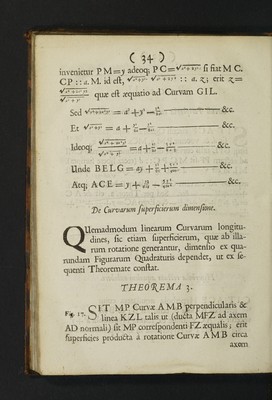 ( 34 )
invenietur P M = y adeoq; P C =
si fiat M C.
C P :: a. M. id est,
:: a. z; erit z =
quæ est æquatio ad Curvam G I L.
Sed
&c.
Et
&c.
Ideoq;
&c.
Unde B E L G = ay +
&c.
Atq; A C E = y +
&c.
De Curvarum superficierum dimensione.
QUemadmodum linearum Curvarum longitu-
dines, sic etiam superficierum, quæ ab illa-
rum rotatione generantur, dimensio ex qua-
rundam Figurarum Quadraturis dependet, ut ex se-
quenti Theoremate constat.
THEOREMA 3.
Fig. 17.
SIT MP Curvæ A M B perpendicularis &
linea K Z L talis ut (ducta MFZ ad axem
AD normali) sit MP correspondenti FZ æqualis; erit
superficies producta à rotatione Curvæ A M B circa
axem